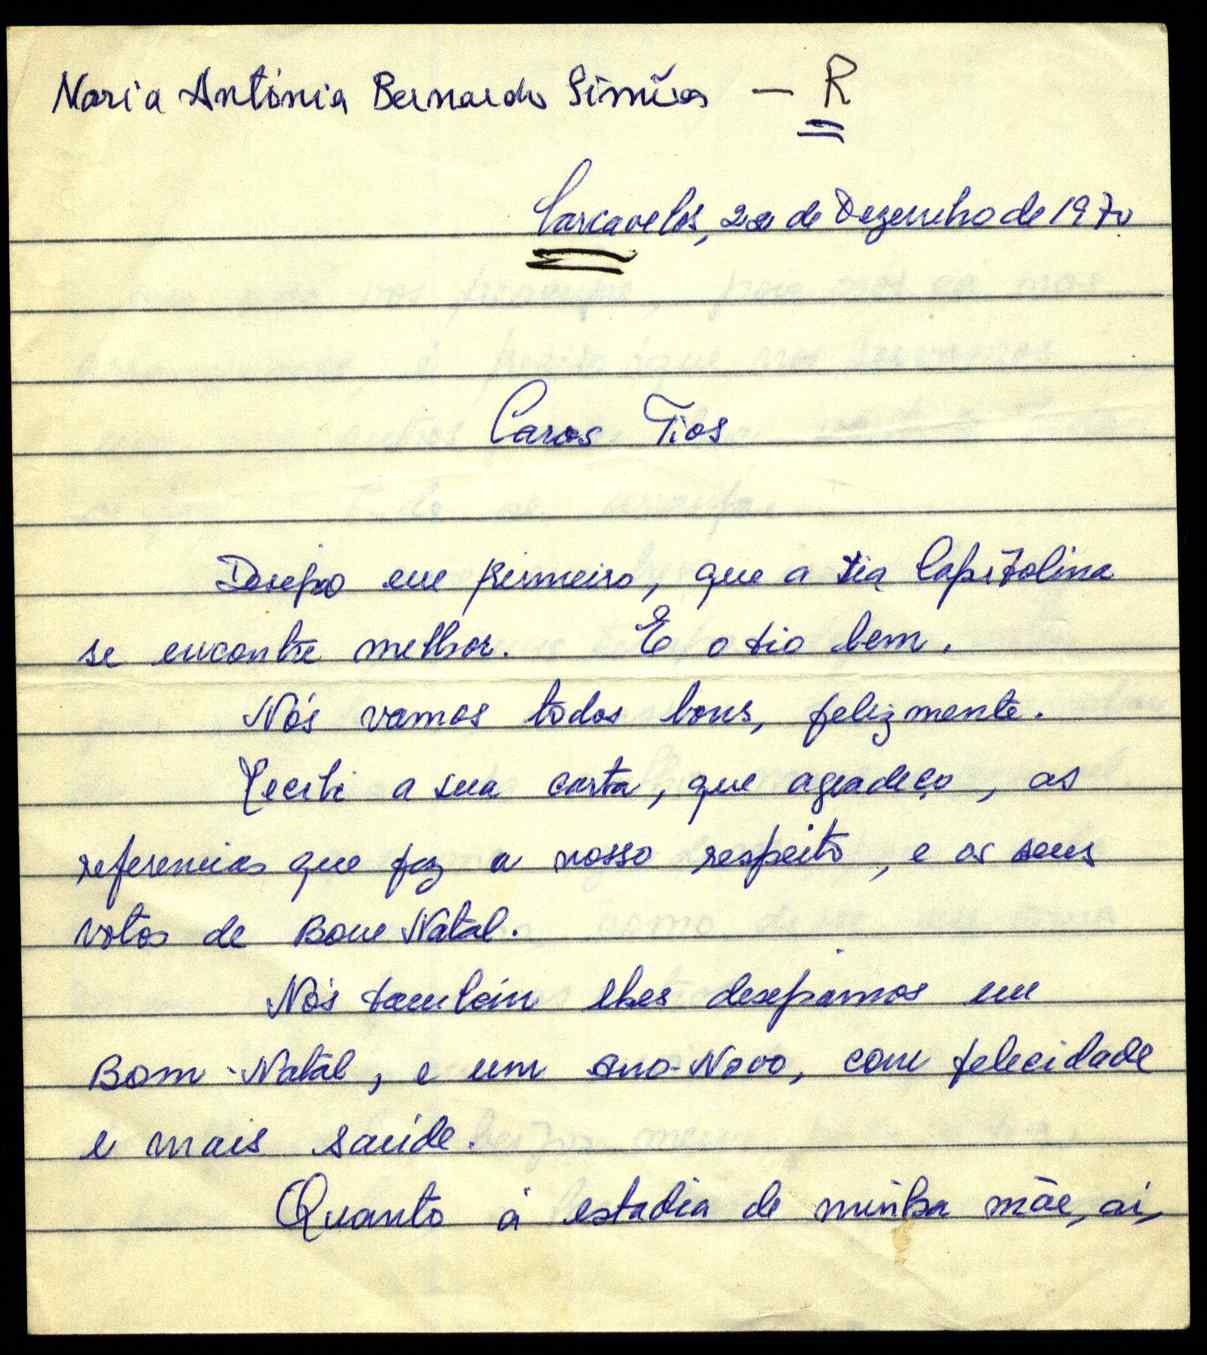 Maria Antónia Bernardo Simões — R
Carcavelos, 22 de Dezembro de 1970
Caros Tios
Desejo em primeiro, que a tia Capitolina
se encontre melhor. E o tio bem.
Nós vamos todos bons, felizmente.
Recebi a sua carta, que agradeço, as
referencias que faz a nosso respeito, e os seus
votos de Bom Natal.
Nós também lhes desejamos um
Bom-Natal, e um ano-Novo, com felecidade
e mais saúde.
Quanto á estadia de minha mãe, aí,